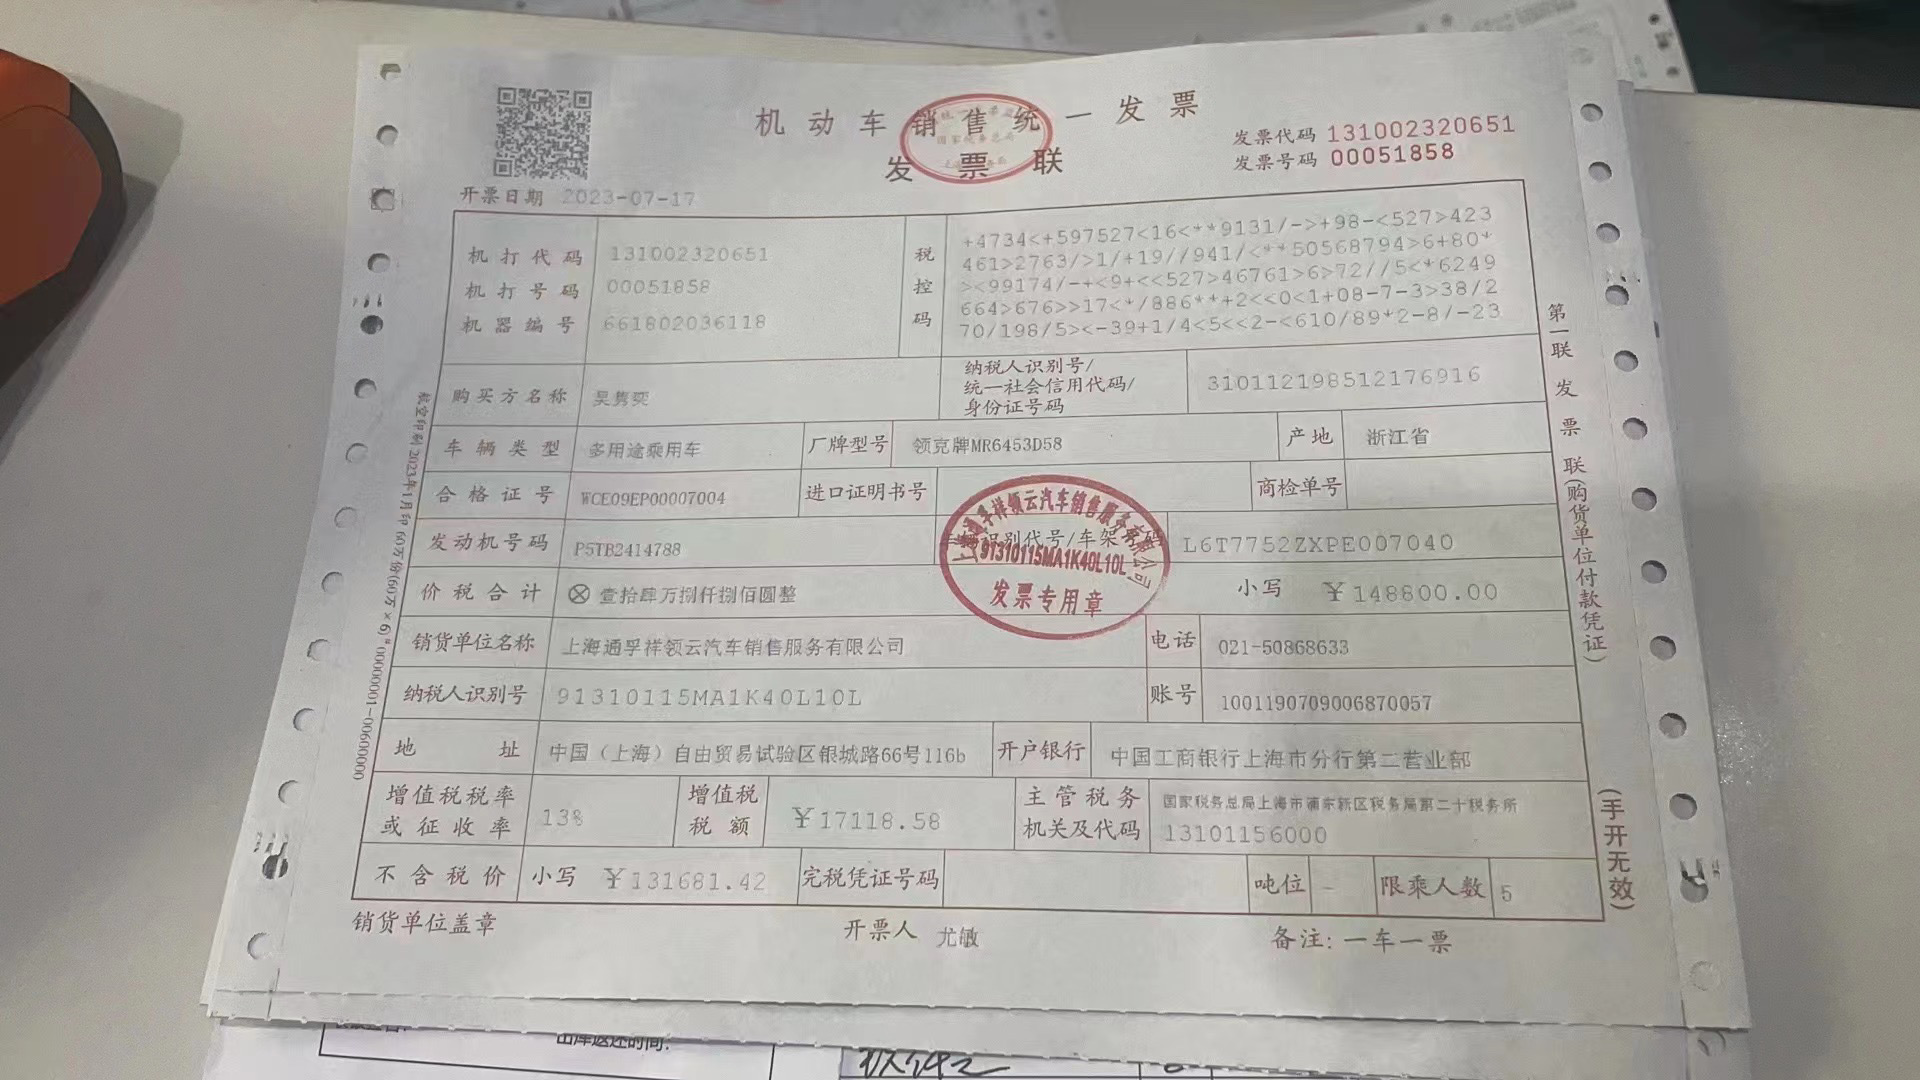 机动车销售统一发票
发票联
发票代码 131002320651
发票号码 00051858
开票日期 2023-07-17
机打代码 131002320651
机打号码 00051858
机器编号 661802036118
税控码
+4734<+597527<16<**9131/->+98-<527>423
461>2763/>1/+19//941/<**50568794>6+80*
><99174/-+<9+<<527>46761>6>72//5<*6249
664>676>>17<*/886**+2<<0<1+08-7-3>38/2
70/198/5><-39+1/4<5<<2-<610/89*2-8/-23
购买方名称 吴隽奕
纳税人识别号/
统一社会信用代码/
身份证号码
310112198512176916
车辆类型 多用途乘用车 厂牌型号 领克牌MR6453D58 产地 浙江省
合格证号 WCE09EP00007004 进口证明书号 商检单号
发动机号码 P5TB2414788 车辆识别代号/车架号码 L6T7752ZXPE007040
价税合计 ⊗壹拾肆万捌仟捌佰圆整 小写 ¥148800.00
销货单位名称 上海通孚祥领云汽车销售服务有限公司 电话 021-50868633
纳税人识别号 91310115MA1K40L10L 账号 1001190709006870057
地址 中国（上海）自由贸易试验区银城路66号116b 开户银行 中国工商银行上海市分行第二营业部
增值税税率
或征收率
13%
增值税
税额
¥17118.58
主管税务
机关及代码
国家税务总局上海市浦东新区税务局第二十税务所
13101156000
不含税价 小写 ¥131681.42 完税凭证号码 吨位 - 限乘人数 5
销货单位盖章 开票人 尤敏 备注:一车一票
第一联 发票联(购货单位付款凭证)
(手开无效)
上海通孚祥领云汽车销售服务有限公司
91310115MA1K40L10L
发票专用章
出库返还时间: